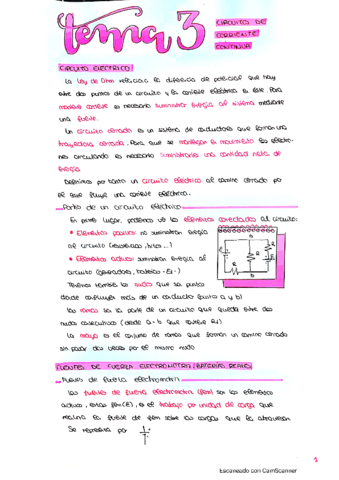 tema 3
CIRCUITOS DE
CORRIENTE
CONTINUA
CIRCUITO ELÉCTRICO
La Ley de Ohm relaciona la diferencia de potencial que hay
entre dos puntos de un circuito y la corriente eléctrica en éste. Para
mantener corriente es necesario suministrar energía al sistema mediante
una fuente.
Un circuito cerrado es un sistema de conductores que forman una
trayectoria cerrada. Para que se mantenga el movimiento los electro-
nes circulando es necesario suministrarles una cantidad neta de
energía.
Definimos por tanto un circuito eléctrico al camino cerrado por
el que fluye una corriente eléctrica.
Partes de un circuito eléctrico
En primer lugar, podemos ver los elementos conectados al circuito:
* Elementos pasivos: no suministran energía
al circuito (resistencias, hilos...)
* Elementos activos: suministran energía al
circuito (generadores, baterías -E-)
Tenemos también los nudos que son puntos
donde confluyen más de un conductor (puntos a y b)
Las ramas son la parte de un circuito que queda entre dos
nudos consecutivos (desde a-b que contiene R1)
La malla es el conjunto de ramas que forman un camino cerrado
sin pasar dos veces por el mismo nudo
FUENTES DE FUERZA ELECTROMOTRIZ (BATERÍAS REALES)
Fuentes de fuerza electromotriz
Las fuentes de fuerza electromotriz (fem) son los elementos
activos, esta fem (E), es el trabajo por unidad de carga que
realiza la fuente de fem sobre las cargas que la atraviesan
Se representa por
1
Escaneado con CamScanner